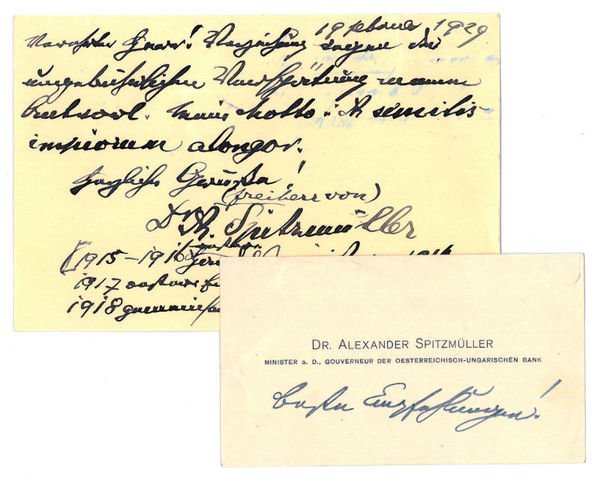 19 Februar 1929
Verehrter Herr! Verzeihung wegen der
ungebührlichen Verspätung meiner
Antwort. Mein Motto: A semitis
impiorum elongor.
Herzliche Grüße!
(Freiherr von)
Dr A. Spitzmüller
(1915–1916
1917
1918
DR. ALEXANDER SPITZMÜLLER
MINISTER a. D., GOUVERNEUR DER OESTERREICHISCH-UNGARISCHEN BANK
beste Empfehlungen!